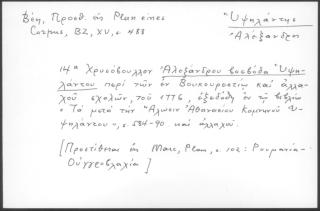 Βέη, Προσθ. εἰς Plan eines
Corpus, BZ, XV, σ 488
Ὑψηλάντης
Ἀλέξανδρος
Χρυσόβουλλον Ἀλεξάνδρου βοεβόδα Ὑψη-
λάντου περὶ τῶν ἐν Βουκουρεστίῳ καὶ ἀλλα-
χοῦ σχολῶν, τοῦ 1776, ἐξεδόθη ἐν τῷ βιβλίῳ
"Τὰ μετὰ τὴν Ἅλωσιν" Ἀθανασίου Κομνηνοῦ Ὑ-
ψηλάντου, σ. 584-90 καὶ ἀλλαχοῦ.
[Προστίθεται εἰς Marc, Plan, σ. 102: Ρουμανία-
Οὐγγροβλαχία]